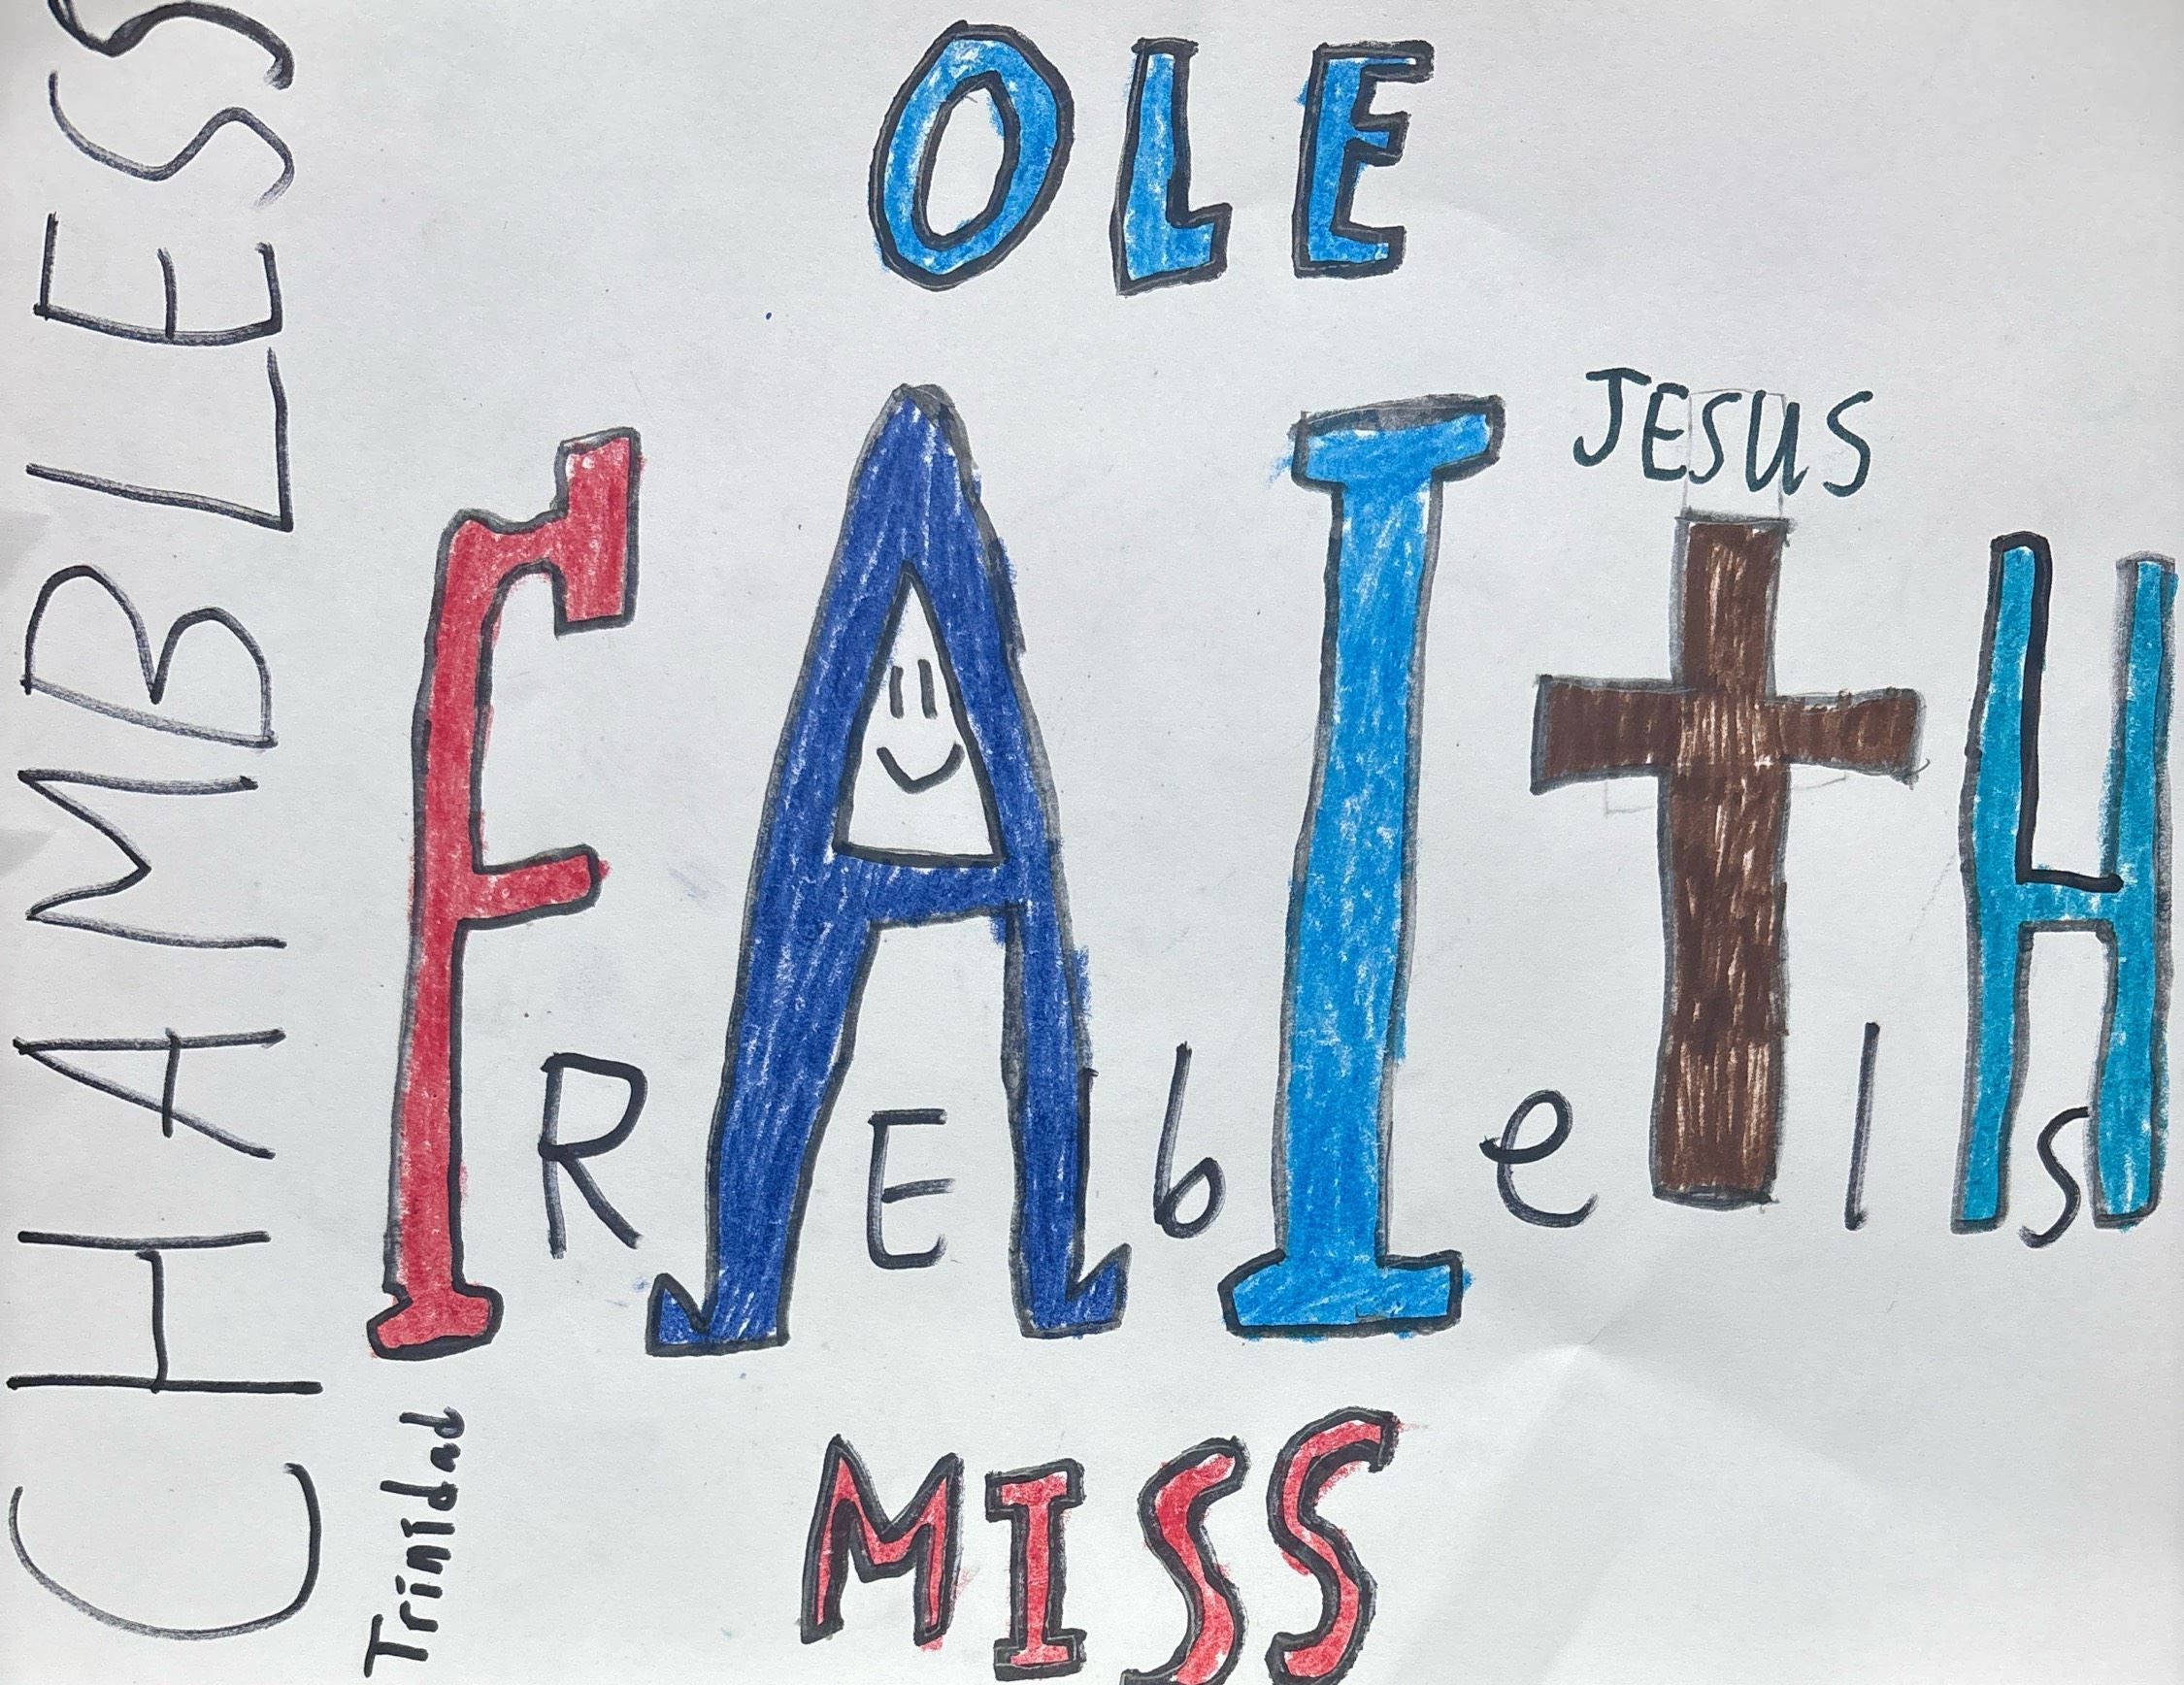 CHAMBLESS
Trinidad
OLE
JESUS
FAItH
REbels
MISS